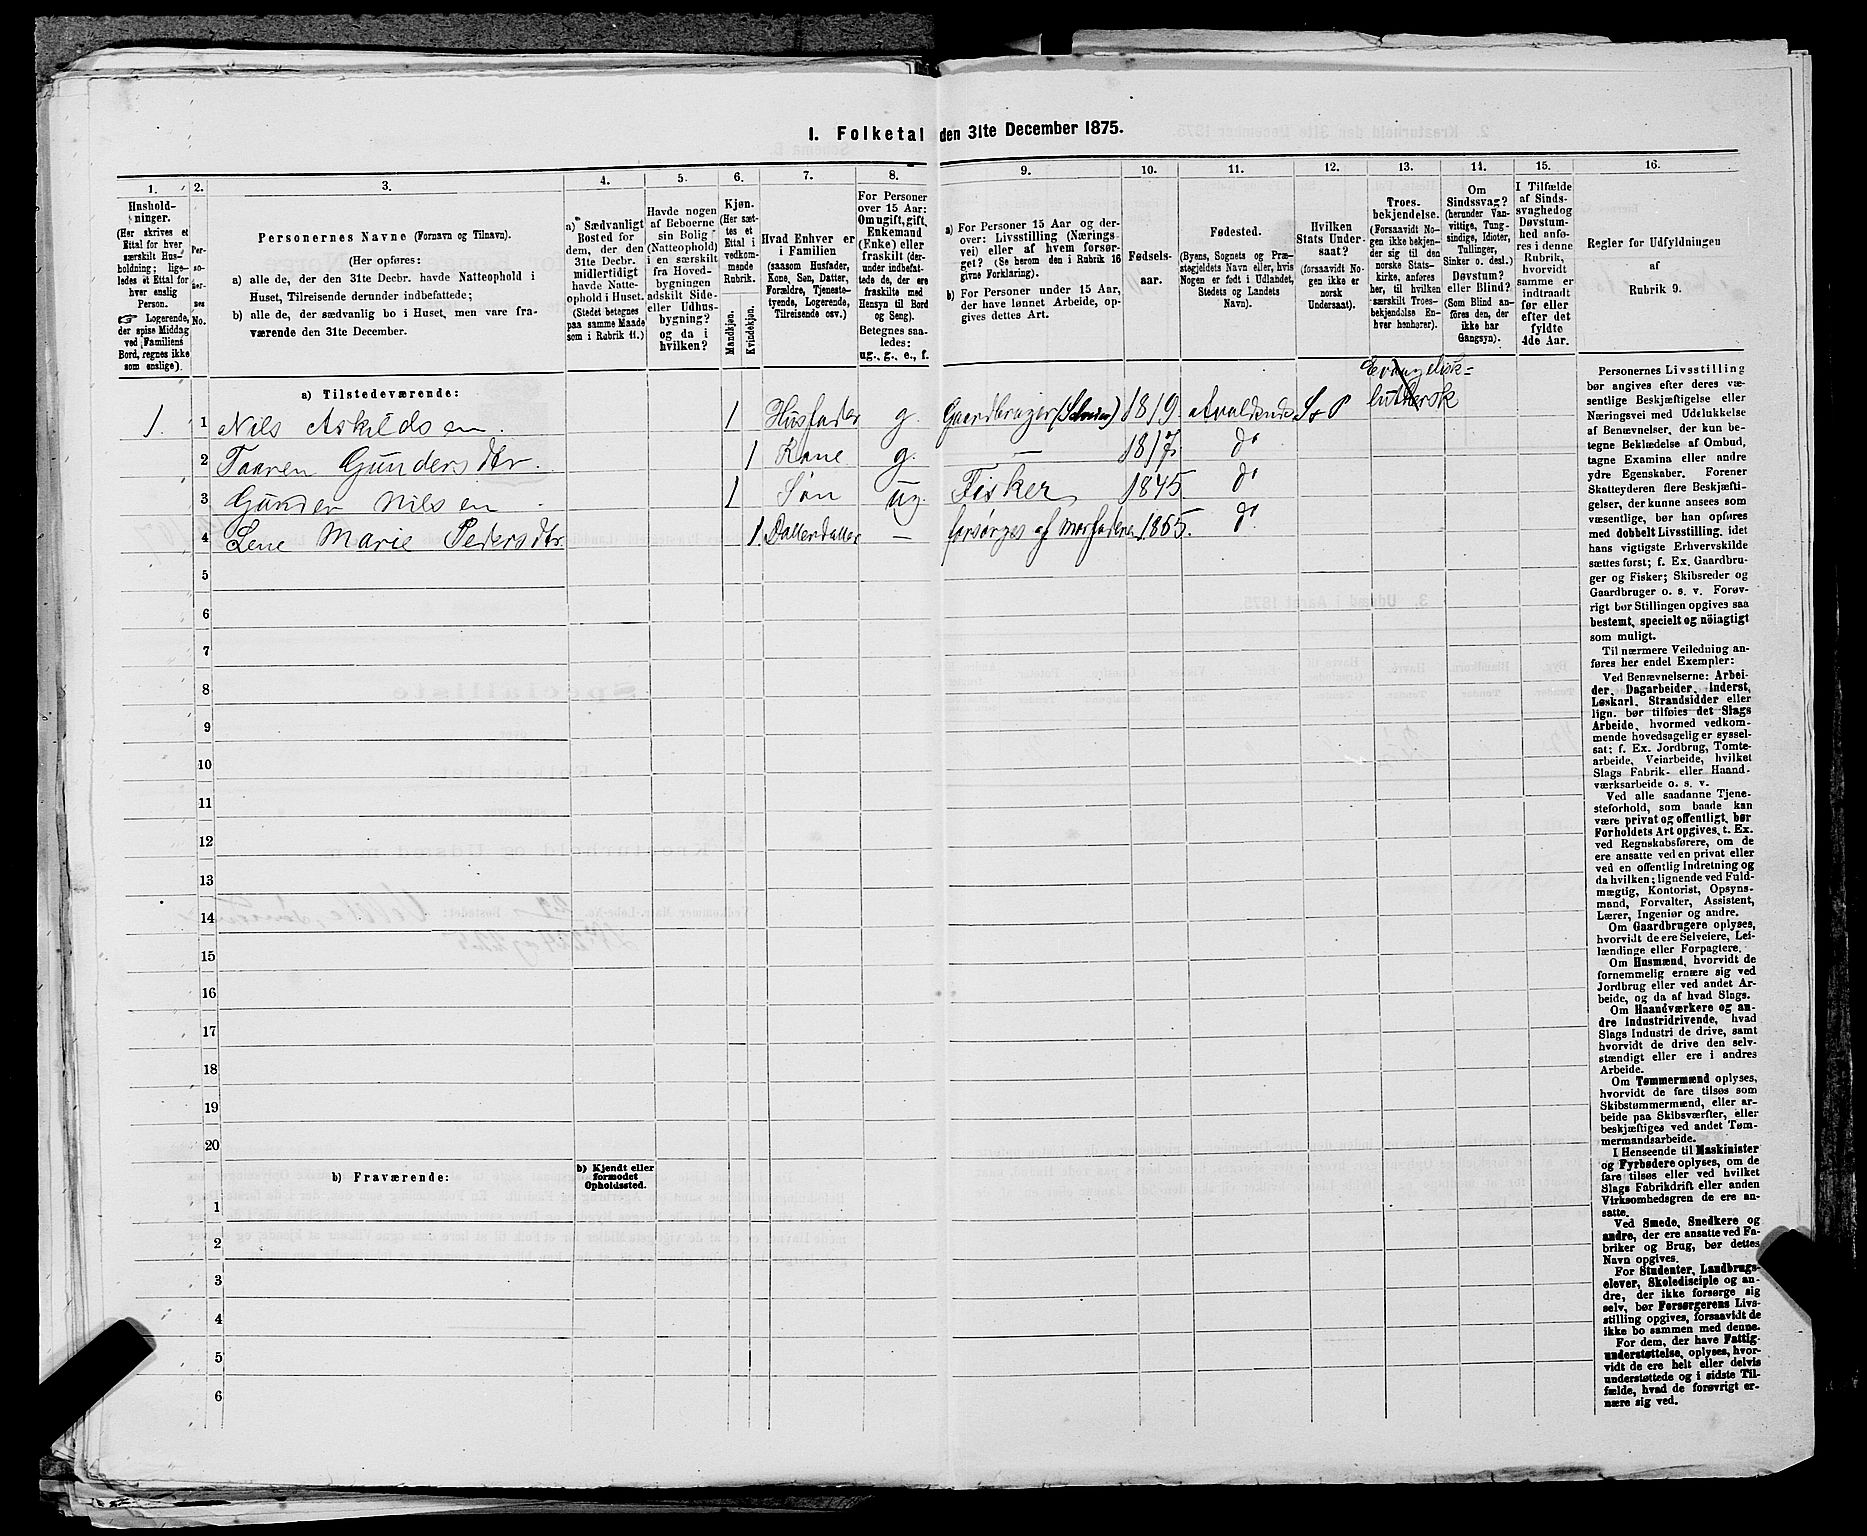 1. Folketal den 31te December 1875.
1. 2. 3. 4. 5. 6. 7. 8. 9. 10. 11. 12. 13. 14. 15. 16.
Hushold-
ninger.
(Her skrives et
Ettal for hver
særskilt Hus-
holdning; lige-
ledes et Ettal for
hver enslig
Person.
☞ Logerende,
der spise Middag
ved Familiens
Bord, regnes ikke
som enslige).
Per-
so-
ner-
nes
No.
Personernes Navne (Fornavn og Tilnavn).
(Her opføres:
a) alle de, der den 31te Decbr. havde Natteophold i
Huset, Tilreisende derunder indbefattede;
b) alle de, der sædvanlig bo i Huset, men vare fra-
værende den 31te December.
a) Sædvanligt
Bosted for
dem, der den
31te Decbr.
midlertidigt
havde Natte-
ophold i Huset.
(Stedet betegnes
paa samme Maade
som i Rubrik 11.)
Havde nogen
af Beboerne
sin Bolig
(Natteophold)
i en særskilt
fra Hoved-
bygningen
adskilt Side-
eller Udhus-
bygning?
og da i
hvilken?
Kjøn.
(Her sæt-
tes et
Ettal i
vedkom-
mende
Rubrik.
Mandkjøn.
Kvindekjøn.
Hvad Enhver er
i Familien
(saasom Husfader,
Kone, Søn, Datter,
Forældre, Tjeneste-
tyende, Logerende,
Tilreisende osv.)
For Personer
over 15 Aar:
Om ugift, gift,
Enkemand
(Enke) eller
fraskilt (der-
under indbefat-
tede de, der ere
fraskilte med
Hensyn til Bord
og Seng).
Betegnes saa-
ledes:
ug., g., e., f.
a) For Personer 15 Aar og der-
over: Livsstilling (Nærings-
vei) eller af hvem forsør-
get? (Se herom den i Rubrik 16
givne Forklaring).
b) For Personer under 15 Aar,
der have lønnet Arbeide, op-
gives dettes Art.
Fødsels-
aar.
Fødested.
(Byens, Sognets og Præ-
stegjeldets Navn eller, hvis
Nogen er født i Udlandet,
Stedets og Landets
Navn).
Hvilken
Stats Under-
saat?
(forsaavidt No-
gen ikke er
norsk
Undersaat).
Troes-
bekjendelse.
(Forsaavidt No-
gen ikke bekjen-
der sig til den
norske Stats-
kirke, anføres
her, til hvilken
særskilt Troes-
bekjendelse En-
hver henhører).
Om
Sindssvag?
(herunder Van-
vittige, Tung-
sindige, Idioter,
Tullinger,
Sinker o. desl.)
Døvstum?
eller Blind?
(Som Blind an-
føres den, der
ikke har
Gangsyn).
I Tilfælde
af Sinds-
svaghed og
Døvstum-
hed anfø-
res i denne
Rubrik,
hvorvidt
samme er
indtraadt
før eller
efter det
fyldte
4de Aar.
Regler for Udfyldningen
af
Rubrik 9.
a) Tilstedeværende:
Evangelisk-
luthersk
1. 1 Nils Askildsen. 1 Husfader g. Gaardbruger 1819. S P
2 Taaren Gundersdtr. 1 Kone g. — 1817. do
3 Gunder Nilsen 1 Søn ug. Fisker 1845 do
4 Lene Marie Pedersdtr. 1. Datterdatter — forsørges af Morfaderen 1865. do
5
6
7
8
9
10
11
12
13
14
15
16
17
18
19
20
b) Fraværende:
b) Kjendt eller
formodet
Opholdssted.
1
2
3
4
5
6
Personernes Livsstilling
bør angives efter deres væ-
sentlige Beskjæftigelse eller
Næringsvei med Udelukkelse
af Benævnelser, der kun be-
tegne Beklædelse af Ombud,
tagne Examina eller andre
ydre Egenskaber. Forener
Skatteyderen flere Beskjæfti-
gelser, der kunne ansees som
væsentlige, bør han opføres
med dobbelt Livsstilling, idet
hans vigtigste Erhvervskilde
sættes først; f. Ex. Gaardbru-
ger og Fisker; Skibsreder og
Gaardbruger o. s. v. Forøv-
rigt bør Stillingen opgives saa
bestemt, specielt og nöiagtigt
som muligt.
Til nærmere Veiledning an-
føres her endel Exempler:
Ved Benævnelserne: Arbei-
der, Dagarbeider, Inderst,
Løskarl, Strandsidder eller
lign. bør tilføies det Slags
Arbeide, hvormed vedkom-
mende hovedsagelig er syssel-
sat; f. Ex. Jordbrug, Tomte-
arbeide, Veiarbeide, hvilket
Slags Fabrik- eller Haand-
værksarbeide o. s. v.
Ved alle saadanne Tjene-
steforhold, som baade kan
være privat og offentligt, bør
Forholdets Art opgives, t. Ex.
ved Regnskabsførere, om de
ere ansatte ved en privat eller
ved en offentlig Indretning og
da hvilken; lignende ved Fuld-
mægtig, Kontorist, Opsyns-
mand, Forvalter, Assistent,
Lærer, Ingeniør og andre.
Om Gaardbrugere oplyses,
hvorvidt de ere Selveiere, Lei-
lændinge eller Forpagtere.
Om Husmænd, hvorvidt de
fornemmelig ernære sig ved
Jordbrug eller ved andet Ar-
beide, og da af hvad Slags.
Om Haandværkere og an-
dre Industridrivende, hvad
Slags Industri de drive, samt
hvorvidt de drive den selv-
stændigt eller ere i andres
Arbeide.
Om Tømmermænd oplyses,
hvorvidt de fare tilsøs som
Skibstømmermænd, eller ar-
beide paa Skibsværfter, eller
beskjæftiges ved andet Tøm-
mermandsarbeide.
I Henseende til Maskinister
og Fyrbødere oplyses, om de
fare tilsøs eller ved hvilket
Slags Fabrikdrift eller anden
Virksomhedsgren de ere an-
satte.
Ved Smede, Snedkere og
andre, der ere ansatte ved Fa-
briker og Brug, bør dettes
Navn opgives.
For Studenter, Landbrugs-
elever, Skoledisciple og an-
dre, der ikke forsørge sig
selv, bør Forsørgerens Livs-
stilling opgives, forsaavidt de
ikke bo sammen med denne.
For dem, der have Fattig-
understøttelse, oplyses, hvor-
vidt de ere helt eller delvis
understøttede og i sidste Til-
fælde, hvad de forøvrigt er-
nære sig ved.